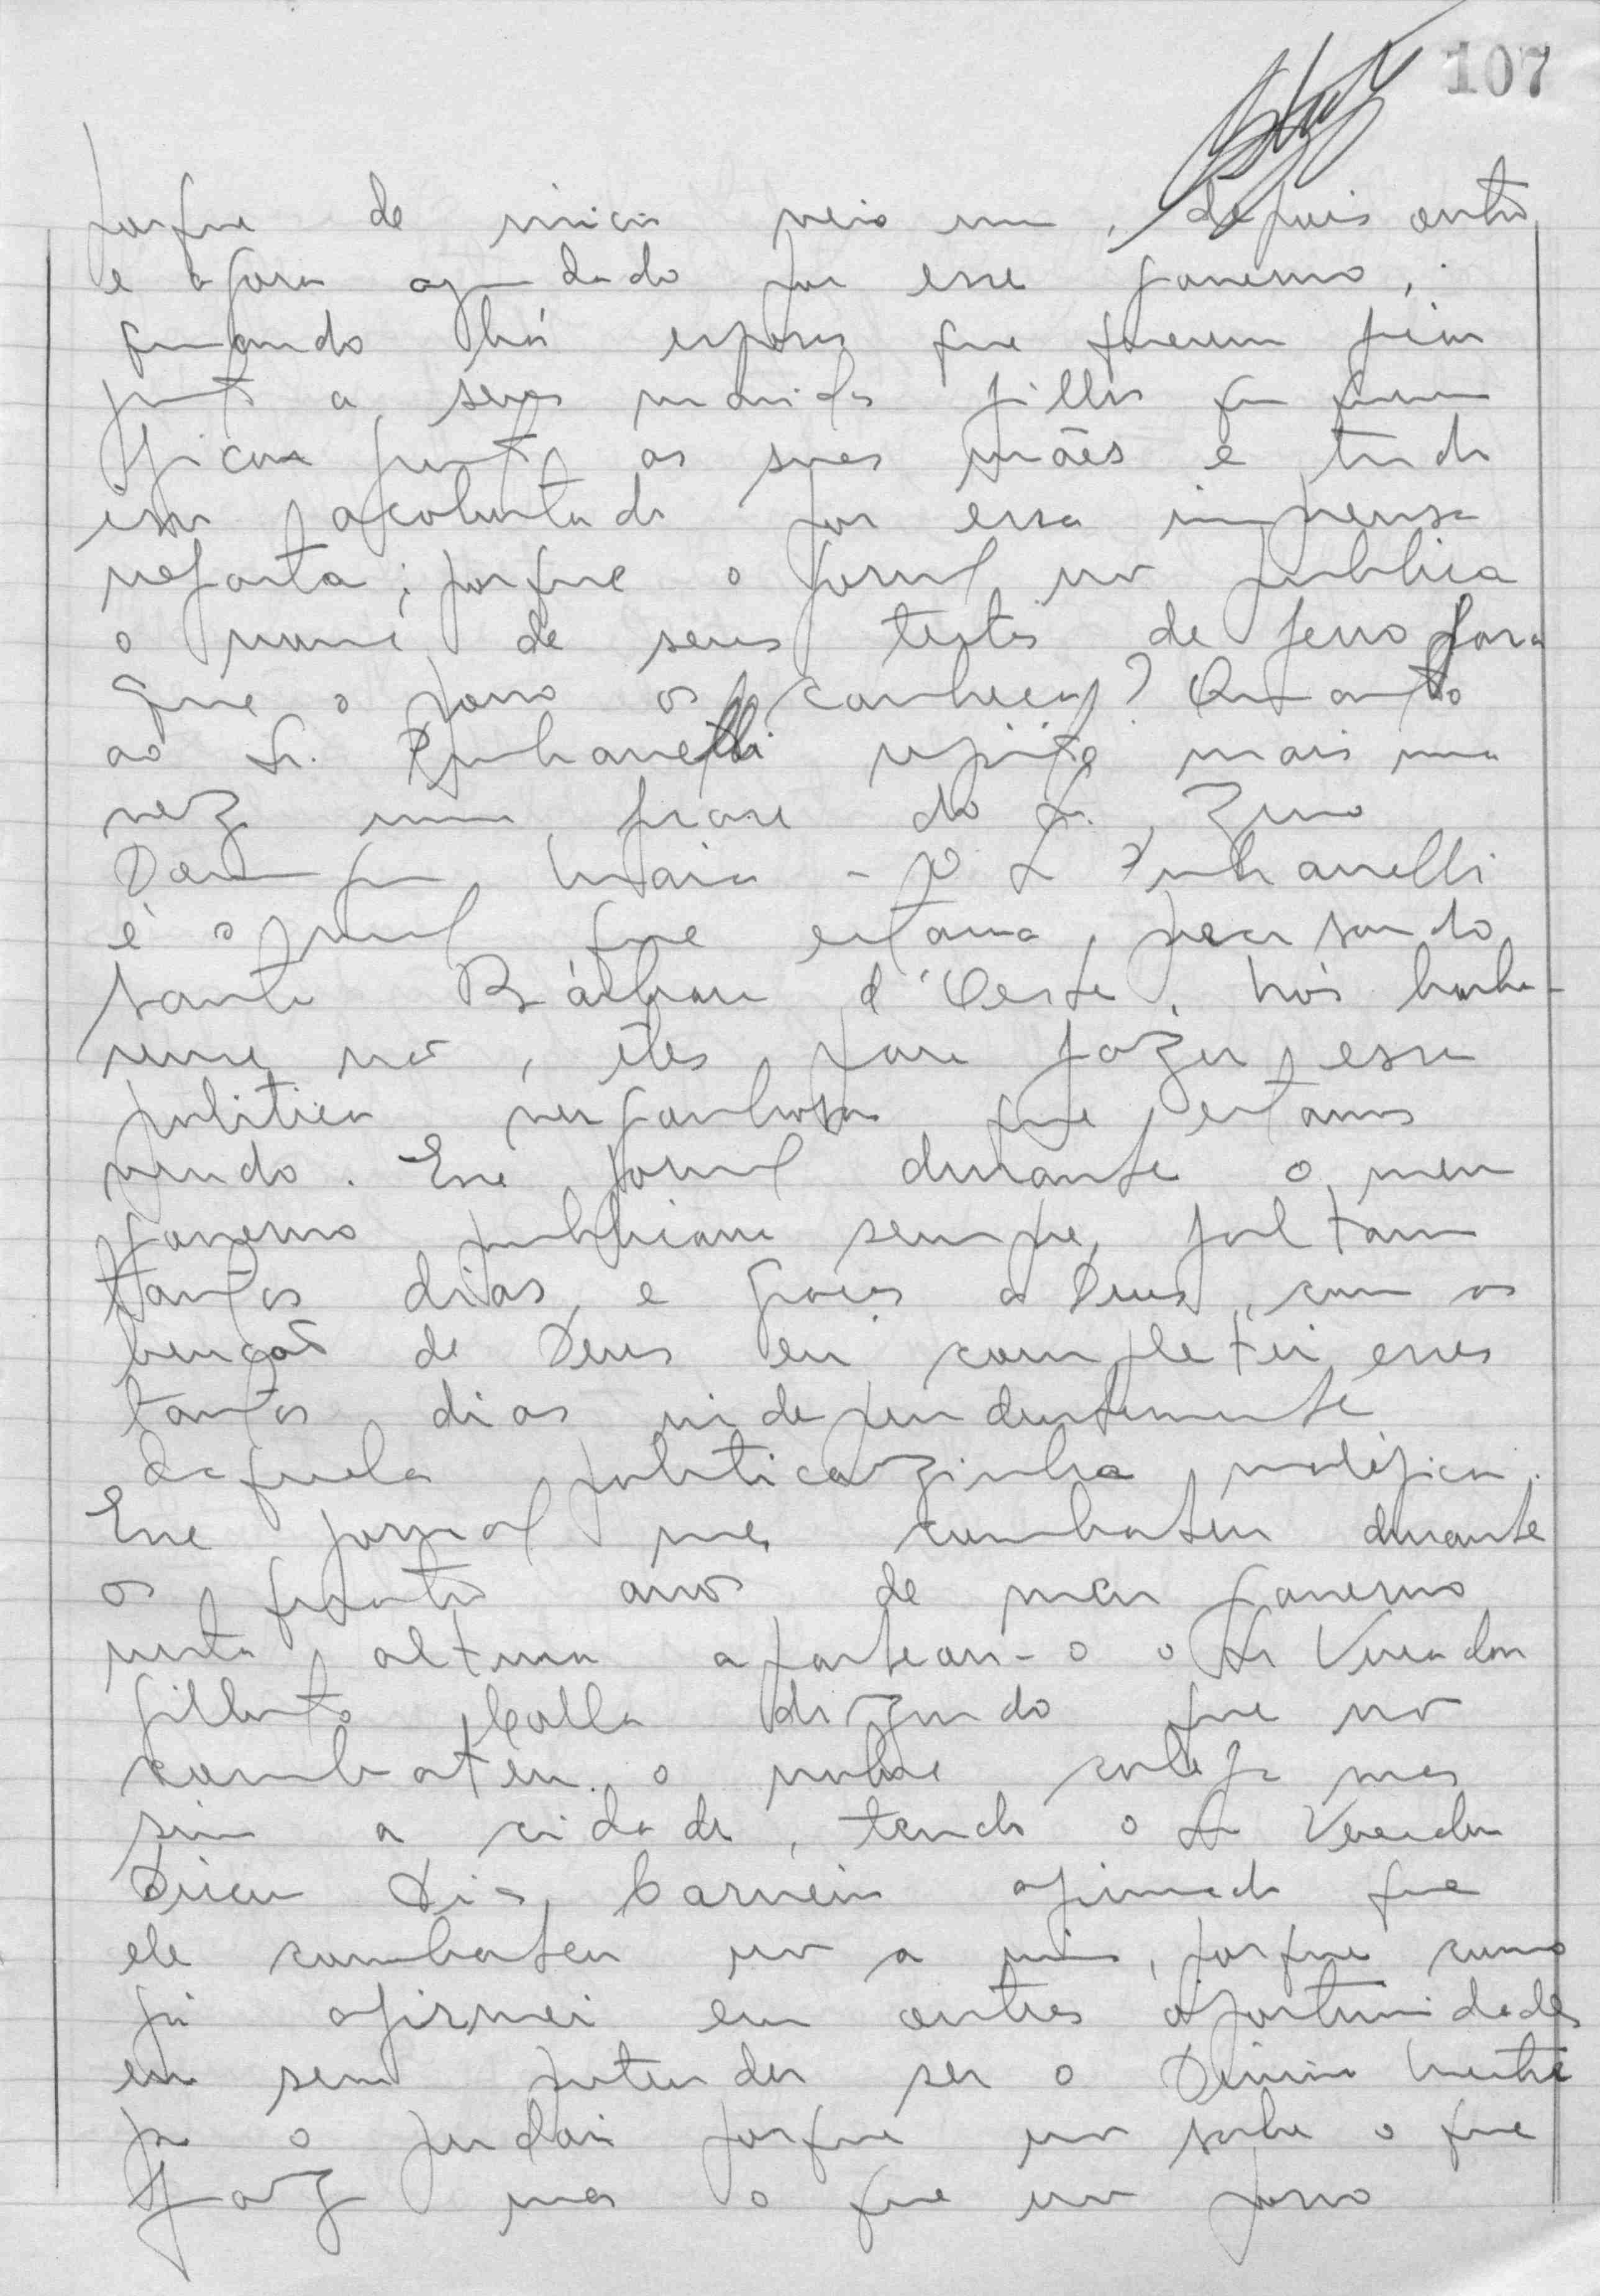 107
porque de inicio veio um, depois outro
e agora ajudado por esse governo,
quando há esposas que querem ficar
junto a seus maridos filhos que querem
ficar junto as suas mães e tudo
isso acobertado por essa imprensa
nefasta; porque o jornal não publica
o nome de seus testas de ferro para
que o povo os conheça? Quanto
ao Sr. repito mais uma
vez uma frase do Sr. Zeno
Maia - O Sr
é o mal que estava, pensando
Santa Bárbara d'Oeste.
não, êles para fazer essa
politica vergonhosa que estamos
vendo. Esse jornal durante o meu
governo publicava sempre, faltam
tantos dias, e graças a Deus, com as
bençãos de Deus eu completei esses
tantos dias independentemente
daquela politicazinha maléfica.
Esse jornal me combateu durante
os quatro anos de meu governo
nesta altura aparteou-o o Sr Vereador
Filberto Calla dizendo que não
combateu o nobre colega mas
sim a cidade, tendo o Sr Vereador
Dirceu Dias Carneiro afirmado que
ele combateu não a mim, porque como
já afirmei em outras oportunidades
eu sem pretender ser o Divino Mestre
já o perdoei porque não sabe o que
faz mas o que não posso